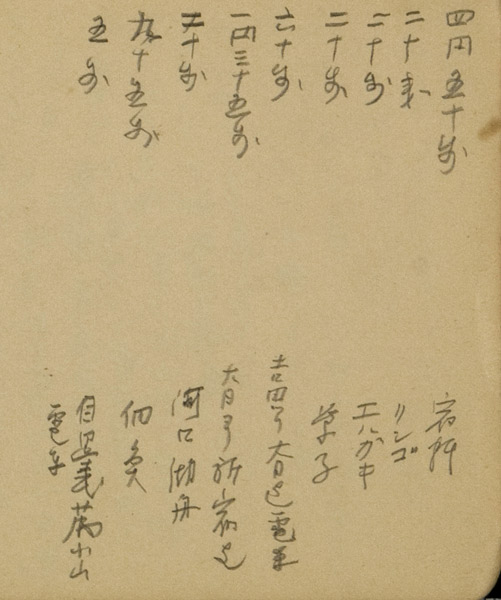 四円五十銭 宿料
二十銭 リンゴ
二十銭 エハガキ
二十銭 菓子
六十銭 吉田ヨリ大月迄電車
一円三十五銭 大月ヨリ新宿迄
二十銭 河口湖舟
九十五銭 佃煮
五銭 目黒 小山電車